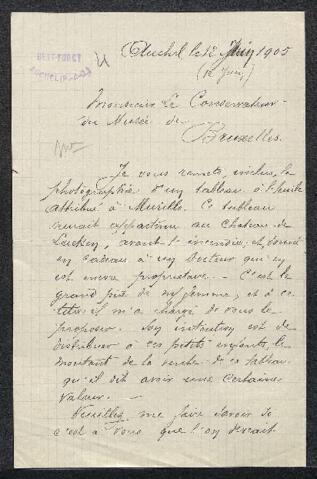 Auchel le 12 Juin 1905
(12 Juin)
Monsieur Le Conservateur
du Musée de
Bruxelles.
Je vous remets, inclus, la
photographie d'un tableau à l'huile
attribué à Murillo. Ce tableau
aurait appartenu au Chateau de
Laeken, avant l'incendie; et, donné
en cadeau à un Docteur qui en
est encore propriétaire. C'est le
grand père de ma femme, et à ce
titre il m'a chargé de vous le
proposer. Son intention est de
distribuer à ces petits enfants le
montant de la vente de ce tableau
qu'il dit avoir une certaine
valeur.
Veuillez me faire savoir si
c'est à vous que l'on devrait